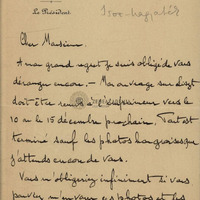 Le Président
Isoo-hagyaték
Cher Monsieur,
A mon grand regret je suis obligé de vous
déranger encore. – Mon ouvrage sur Liszt
doit être remis à l'imprimeur vers le
10 ou le 15 décembre prochain. Tout est
terminé sauf les photos hongroises que
j'attends encore de vous.
Vous m'obligeriez infiniment si vous
pouviez m'envoyer ces photos et les